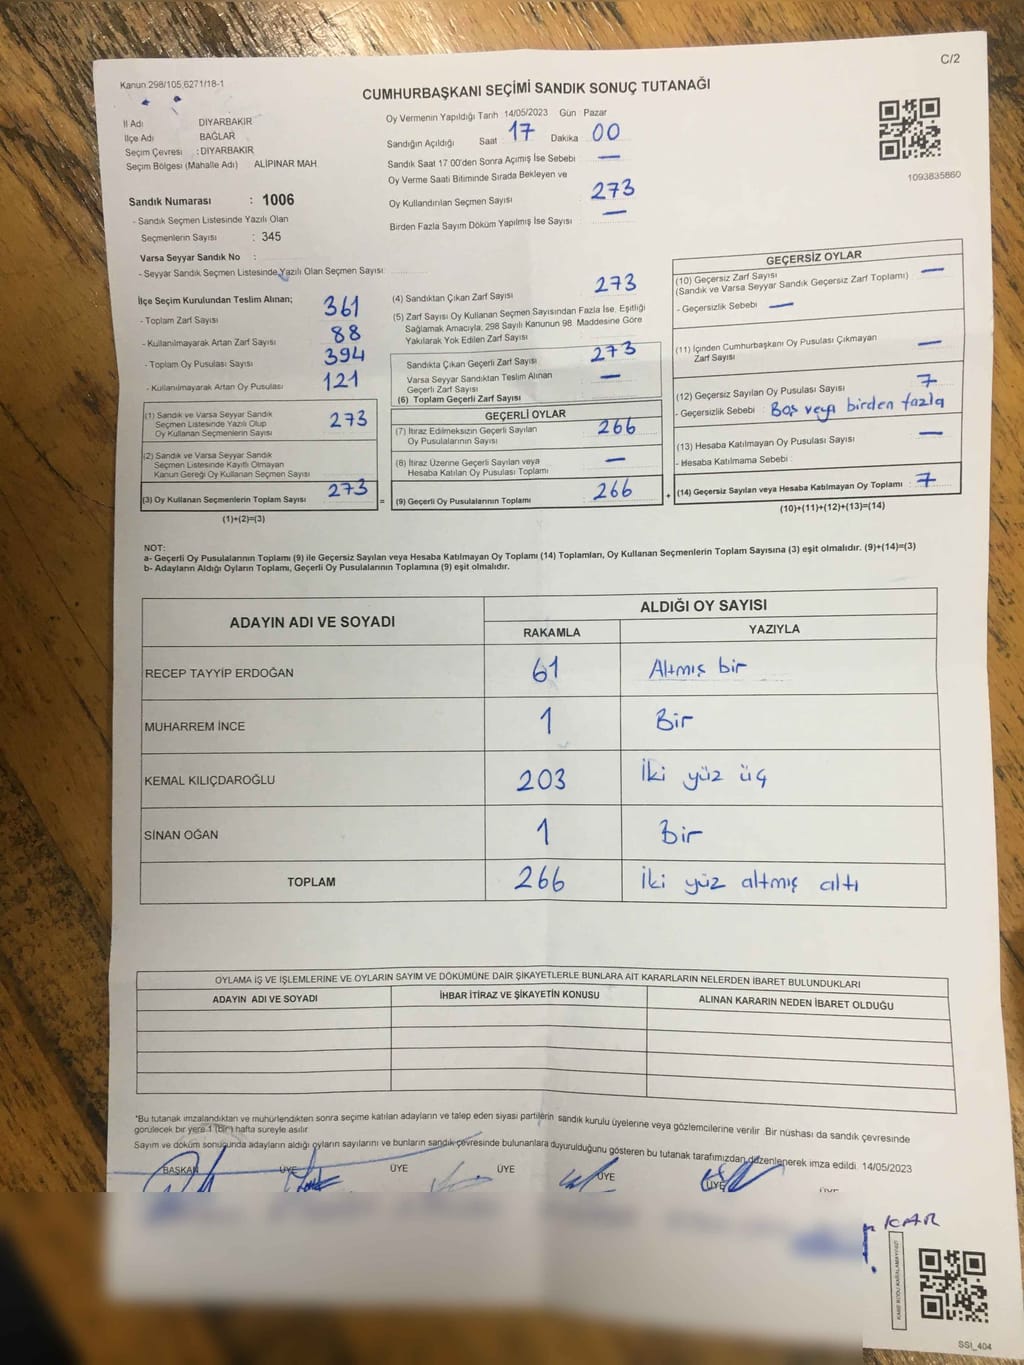 C/2
Kanun 298/105,6271/18-1
CUMHURBAŞKANI SEÇİMİ SANDIK SONUÇ TUTANAĞI
İl Adı DİYARBAKIR
İlçe Adı BAĞLAR
Seçim Çevresi : DİYARBAKIR
Seçim Bölgesi (Mahalle Adı) ALİPINAR MAH.
Oy Vermenin Yapıldığı Tarih 14/05/2023 Gün Pazar
Sandığın Açıldığı Saat 17 Dakika 00
Sandık Saat 17 00'den Sonra Açımış İse Sebebi —
Oy Verme Saati Bitiminde Sırada Bekleyen ve
Oy Kullandırılan Seçmen Sayısı 273
Birden Fazla Sayım Döküm Yapılmış İse Sayısı —
1093835860
Sandık Numarası : 1006
- Sandık Seçmen Listesinde Yazılı Olan
Seçmenlerin Sayısı : 345
Varsa Seyyar Sandık No :
- Seyyar Sandık Seçmen Listesinde Yazılı Olan Seçmen Sayısı
İlçe Seçim Kurulundan Teslim Alınan;
- Toplam Zarf Sayısı 361
- Kullanılmayarak Artan Zarf Sayısı 88
- Toplam Oy Pusulası Sayısı 394
- Kullanılmayarak Artan Oy Pusulası 121
(1) Sandık ve Varsa Seyyar Sandık
Seçmen Listesinde Yazılı Olup
Oy Kullanan Seçmenlerin Sayısı 273
(2) Sandık ve Varsa Seyyar Sandık
Seçmen Listesinde Kayıtlı Olmayan
Kanun Gereği Oy Kullanan Seçmen Sayısı
(3) Oy Kullanan Seçmenlerin Toplam Sayısı 273 =
(1)+(2)=(3)
(4) Sandıktan Çıkan Zarf Sayısı 273
(5) Zarf Sayısı Oy Kullanan Seçmen Sayısından Fazla İse, Eşitliği
Sağlamak Amacıyla; 298 Sayılı Kanunun 98. Maddesine Göre
Yakılarak Yok Edilen Zarf Sayısı
Sandıkta Çıkan Geçerli Zarf Sayısı 273
Varsa Seyyar Sandıktan Teslim Alınan
Geçerli Zarf Sayısı —
(6) Toplam Geçerli Zarf Sayısı
GEÇERLİ OYLAR
(7) İtiraz Edilmeksizin Geçerli Sayılan
Oy Pusulalarının Sayısı 266
(8) İtiraz Üzerine Geçerli Sayılan veya
Hesaba Katılan Oy Pusulası Toplamı —
(9) Geçerli Oy Pusulalarının Toplamı 266 +
GEÇERSİZ OYLAR
(10) Geçersiz Zarf Sayısı
(Sandık ve Varsa Seyyar Sandık Geçersiz Zarf Toplamı) —
- Geçersizlik Sebebi —
(11) İçinden Cumhurbaşkanı Oy Pusulası Çıkmayan
Zarf Sayısı —
(12) Geçersiz Sayılan Oy Pusulası Sayısı 7
- Geçersizlik Sebebi : Boş veya birden fazla
(13) Hesaba Katılmayan Oy Pusulası Sayısı —
- Hesaba Katılmama Sebebi :
(14) Geçersiz Sayılan veya Hesaba Katılmayan Oy Toplamı : 7
(10)+(11)+(12)+(13)=(14)
NOT:
a- Geçerli Oy Pusulalarının Toplamı (9) ile Geçersiz Sayılan veya Hesaba Katılmayan Oy Toplamı (14) Toplamları, Oy Kullanan Seçmenlerin Toplam Sayısına (3) eşit olmalıdır. (9)+(14)=(3)
b- Adayların Aldığı Oyların Toplamı, Geçerli Oy Pusulalarının Toplamına (9) eşit olmalıdır.
ADAYIN ADI VE SOYADI ALDIĞI OY SAYISI
RAKAMLA YAZIYLA
RECEP TAYYİP ERDOĞAN 61 Altmış bir
MUHARREM İNCE 1 Bir
KEMAL KILIÇDAROĞLU 203 İki yüz üç
SİNAN OĞAN 1 Bir
TOPLAM 266 İki yüz altmış altı
OYLAMA İŞ VE İŞLEMLERİNE VE OYLARIN SAYIM VE DÖKÜMÜNE DAİR ŞİKAYETLERLE BUNLARA AİT KARARLARIN NELERDEN İBARET BULUNDUKLARI
ADAYIN ADI VE SOYADI İHBAR İTİRAZ VE ŞİKAYETİN KONUSU ALINAN KARARIN NEDEN İBARET OLDUĞU
*Bu tutanak imzalandıktan ve mühürlendikten sonra seçime katılan adayların ve talep eden siyasi partilerin sandık kurulu üyelerine veya gözlemcilerine verilir Bir nüshası da sandık çevresinde
görülecek bir yere 1 (bir) hafta süreyle asılır
Sayım ve döküm sonucunda adayların aldığı oyların sayılarını ve bunların sandık çevresinde bulunanlara duyurulduğunu gösteren bu tutanak tarafımızdan düzenlenerek imza edildi. 14/05/2023
BAŞKAN ÜYE ÜYE ÜYE ÜYE ÜYE
SSİ_404